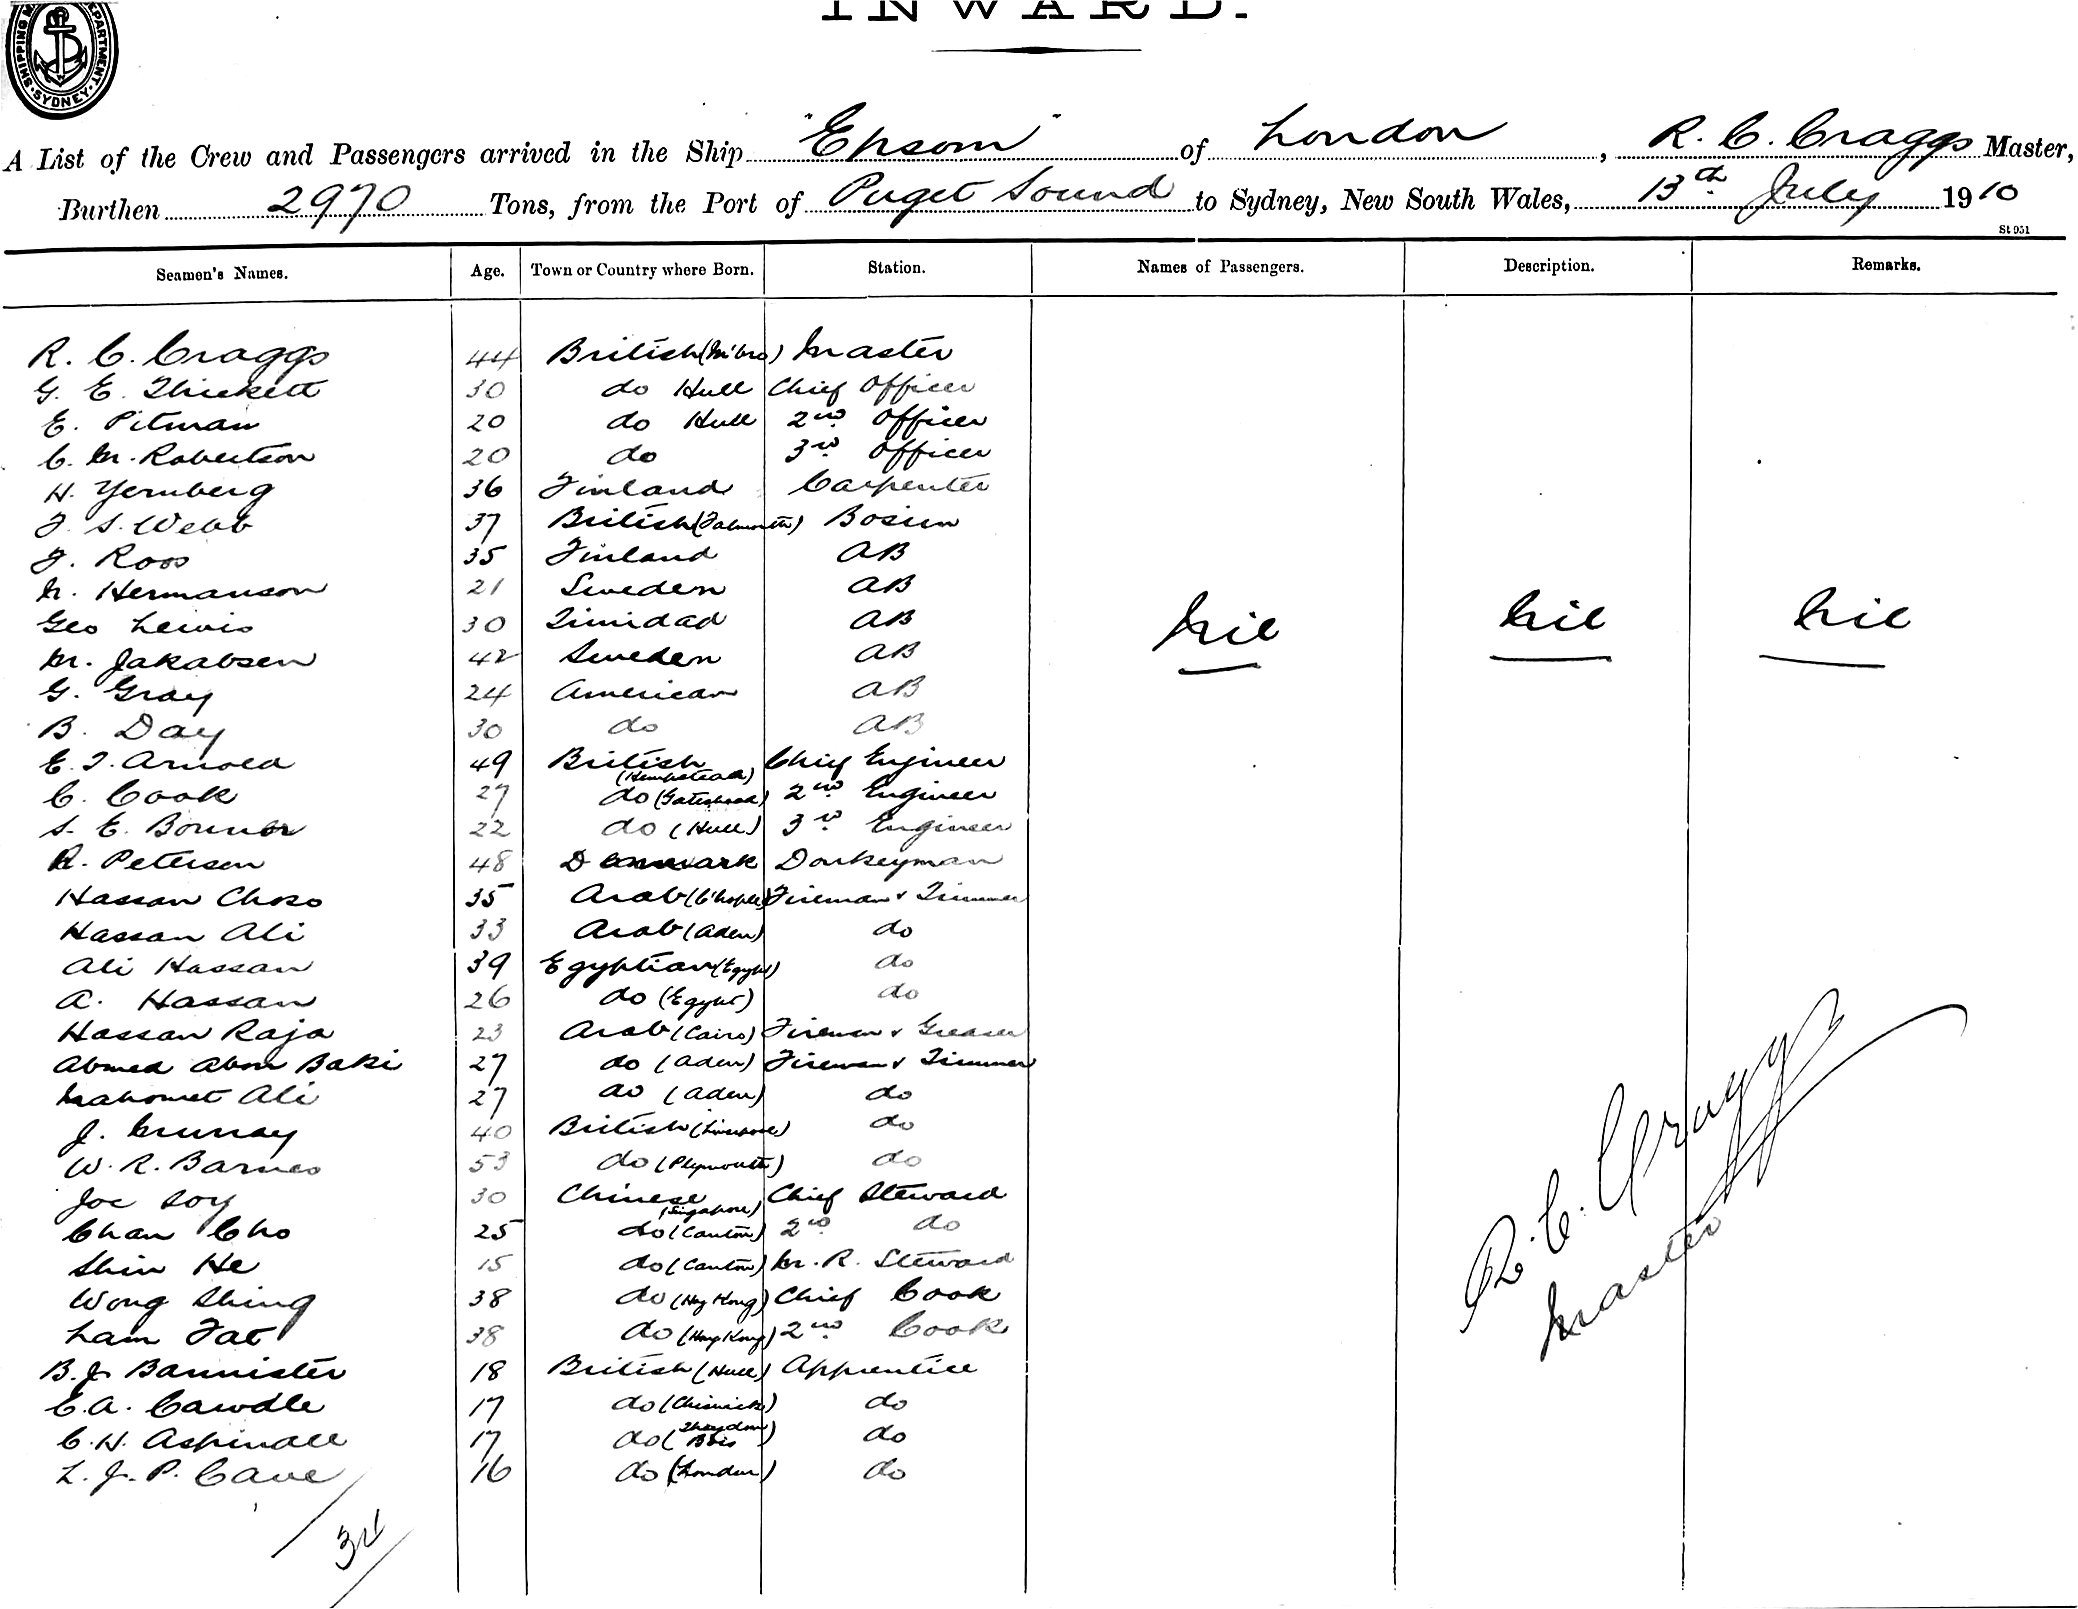 INWARD.
SHIPPING DEPARTMENT. SYDNEY
A List of the Crew and Passengers arrived in the Ship "Epsom" of London, R. C. Craggs Master,
Burthen 2970 Tons, from the Port of Puget Sound to Sydney, New South Wales, 13th July 1910
St 951
Seamen's Names. Age. Town or Country where Born. Station. Names of Passengers. Description. Remarks.
R. C. Craggs 44 British (M'bro) Master
G. E. Thickett 30 do Hull Chief Officer
E. Pitman 20 do Hull 2nd Officer
C. M. Robertson 20 do 3rd Officer
H. Yernberg 36 Finland Carpenter
F. S. Webb 37 British (Falmouth) Bosun
J. Roos 35 Finland AB
N. Hermanson 21 Sweden AB
Geo Lewis 30 Trinidad AB Nil Nil Nil
M. Jakabsen 42 Sweden AB
G. Gray 24 American AB
B. Day 30 do AB
E. T. Arnold 49 British (Hempstead) Chief Engineer
C. Cook 27 do (Gateshead) 2nd Engineer
S. E. Bonner 22 do (Hull) 3rd Engineer
R. Petersen 48 Denmark Donkeyman
Hassan Choso 35 Arab (C'hople) Fireman & Trimmer
Hassan Ali 33 Arab (Aden) do
Ali Hassan 39 Egyptian (Egypt) do
A. Hassan 26 do (Egypt) do
Hassan Raja 23 Arab (Cairo) Fireman & Greaser
Ahmed Abou Baki 27 do (Aden) Fireman & Trimmer
Mahomet Ali 27 do (Aden) do
J. Murray 40 British (Liverpool) do
W. R. Barnes 53 do (Plymouth) do
Joe Soy 30 Chinese (Singapore) Chief Steward
Chan Cho 25 do (Canton) 2nd do
Shin He 15 do (Canton) M. R. Steward
Wong Shing 38 do (Hong Kong) Chief Cook
Lam Fat 38 do (Hong Kong) 2nd Cook
B. J. Bannister 18 British (Hull) Apprentice
C. A. Cawdle 17 do (Chiswick) do
C. H. Aspinall 17 do (Theydon Bois) do
L. J. P. Cave 16 do (London) do
34
R. C. Craggs
Master